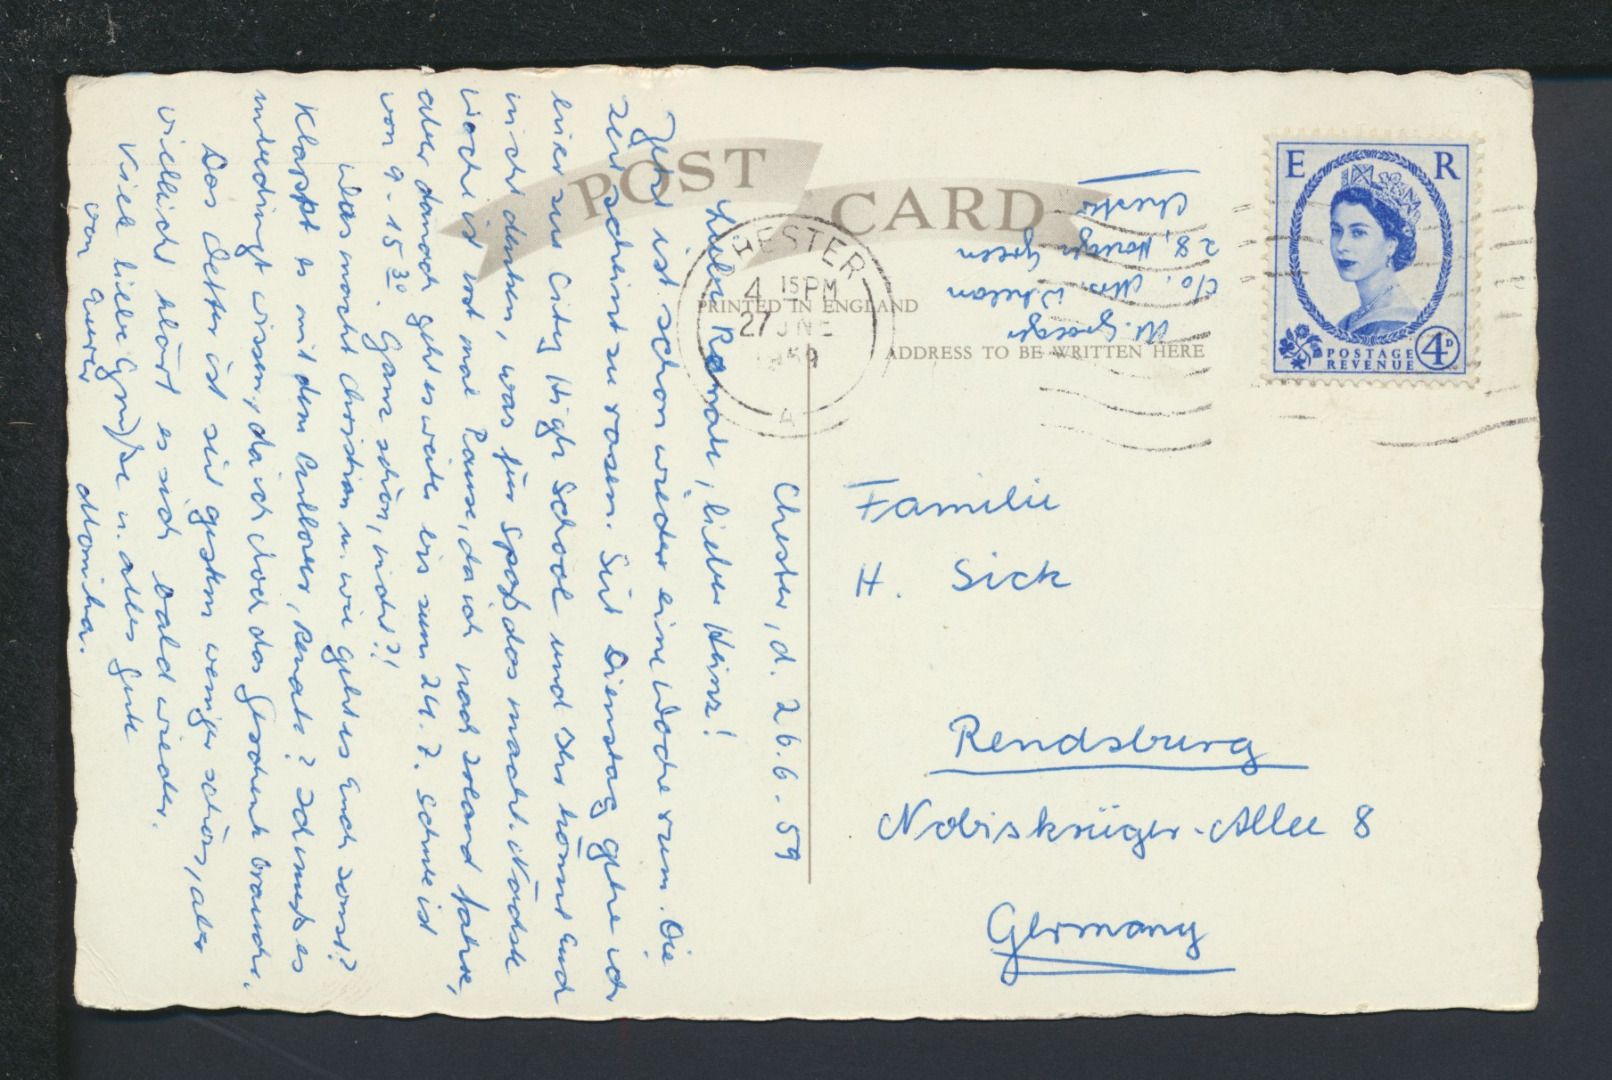 POST CARD
PRINTED IN ENGLAND
ADDRESS TO BE WRITTEN HERE
CHESTER
4 15 PM
27 JNE
1959
A
E R
POSTAGE
REVENUE
4D
c/o. Mrs. Whelan
28, Green
Chester
Familie
H. Sick
Rendsburg
Nobiskrüger-Allee 8
Germany
Chester, d. 26.6.59
Liebe Renate, lieber Heinz!
Jetzt ist schon wieder eine Woche rum. Die
Zeit scheint zu rasen. Seit Dienstag gehe ich
hier zur City High School und Ihr könnt Euch
nicht denken, was für Spaß das macht. Nächste
Woche ist erst mal Pause, da ich nach fahre,
aber danach geht es weiter bis zum 24.7. Schule ist
von 9 - 15 30. Ganz schön, nicht?!
Was macht Christian u. wie geht es Euch sonst?
Klappt es mit dem, Renate? Ich muß es
unbedingt wissen, da ich doch das Geschenk brauche.
Das Wetter ist seit gestern weniger schön, aber
vielleicht klärt es sich bald wieder.
Viele liebe Grüße u. alles Gute
von Eurer Monika.